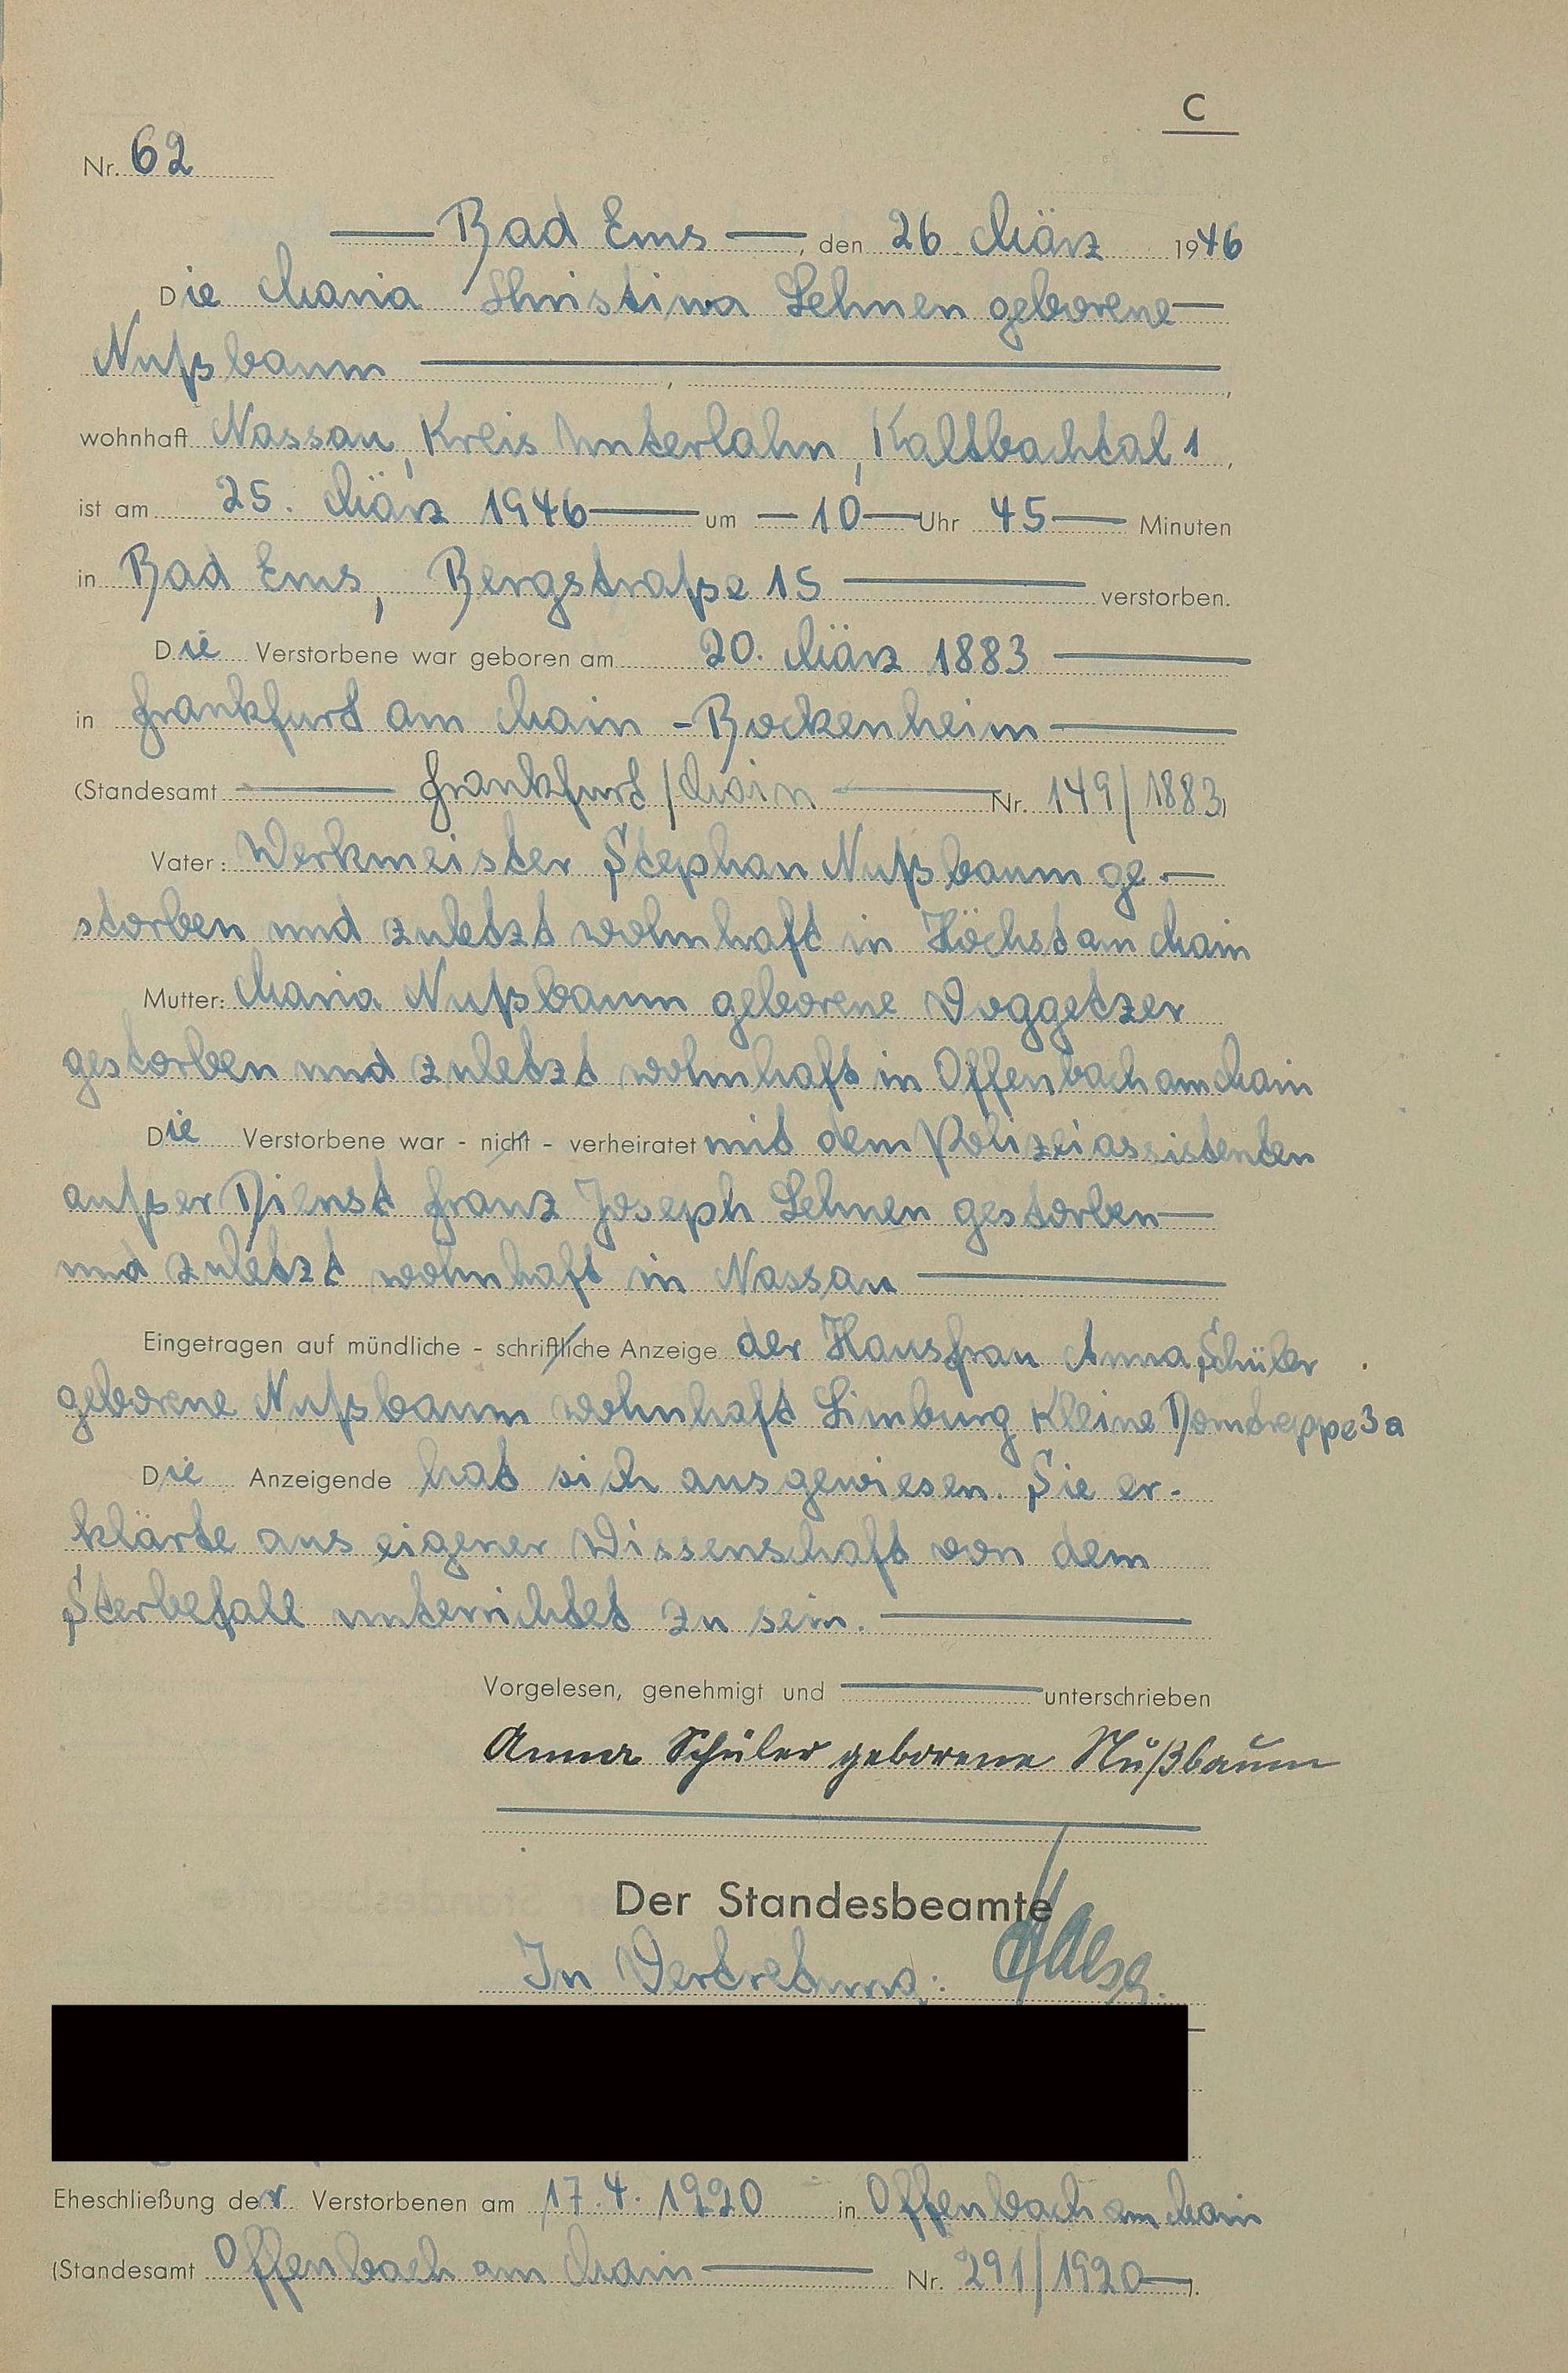 C
Nr. 62
Bad Ems, den 26. März 1946
Die Maria Christina Lehnen geborene
Nußbaum
wohnhaft Nassau, Kreis Unterlahn, Kaltbachtal 1,
ist am 25. März 1946 um 10 Uhr 45 Minuten
in Bad Ems, Bergstraße 15 verstorben.
Die Verstorbene war geboren am 20. März 1883
in Frankfurt am Main - Bockenheim
(Standesamt Frankfurt/Main Nr. 149/1883)
Vater: Werkmeister Stephan Nußbaum ge-
storben und zuletzt wohnhaft in Höchst am Main
Mutter: Maria Nußbaum geborene Voggetzer
gestorben und zuletzt wohnhaft in Offenbach am Main
Die Verstorbene war - nicht - verheiratet mit dem Polizeiassistenten
außer Dienst Franz Joseph Lehnen gestorben
und zuletzt wohnhaft in Nassau
Eingetragen auf mündliche - schriftliche Anzeige der Hausfrau Anna Schüler
geborene Nußbaum wohnhaft Limburg Kleine Domtreppe 3a
Die Anzeigende hat sich ausgewiesen. Sie er-
klärte aus eigener Wissenschaft von dem
Sterbefall unterrichtet zu sein.
Vorgelesen, genehmigt und unterschrieben
Anna Schüler geborene Nußbaum
Der Standesbeamte
In Vertretung:
Eheschließung der Verstorbenen am 17.4.1920 in Offenbach am Main
(Standesamt Offenbach am Main Nr. 291/1920).